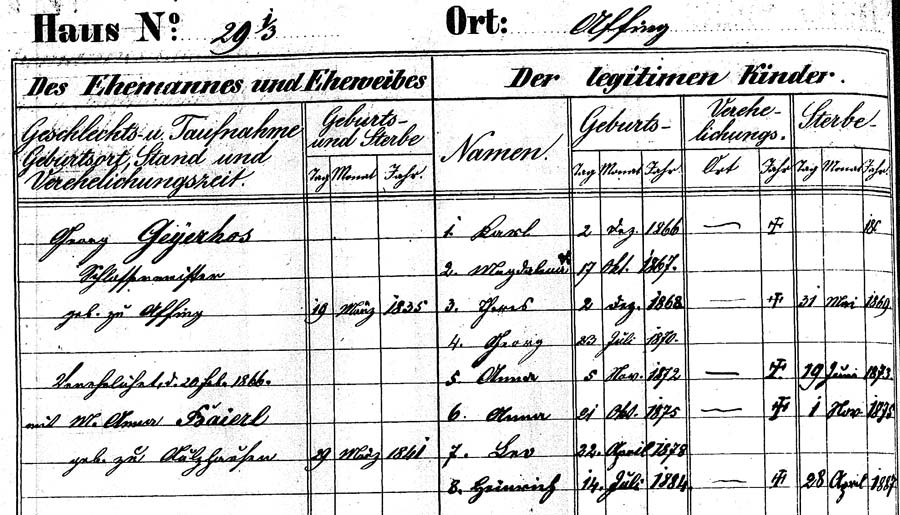 Haus No: 29 1/3 Ort: Affing
Des Ehemannes und Eheweibes Der legitimen Kinder.
Geschlechts- u. Taufnahme Geburts- Namen. Geburts- Verehe- Sterbe-
Geburtsort, Stand und und Sterbe lichungs-
Verehelichungszeit. Tag Monat Jahr. Tag Monat Jahr. Ort Jahr Tag Monat Jahr.
Georg Geyerhos 1. Karl 2 Dez. 1866 — † 18
Schlossermeister 2. Magdalena 17 Okt. 1867.
geb. zu Affing 19 März 1835 3. Theres 2 Dez. 1868 — † 31 Mai 1869
4. Georg 23 Juli 1870.
Verehelicht, d. 20 Feb. 1866. 5 Anna 5 Nov. 1872 — † 19 Juni 1873
mit M. Anna Baierl 6. Anna 21 Okt. 1875 — † 1 Nov. 1875
geb. zu Aulzhausen 29 März 1841 7. Leo 22. April 1878
8. Heinrich 14. Juli 1884. — † 28 April 1887